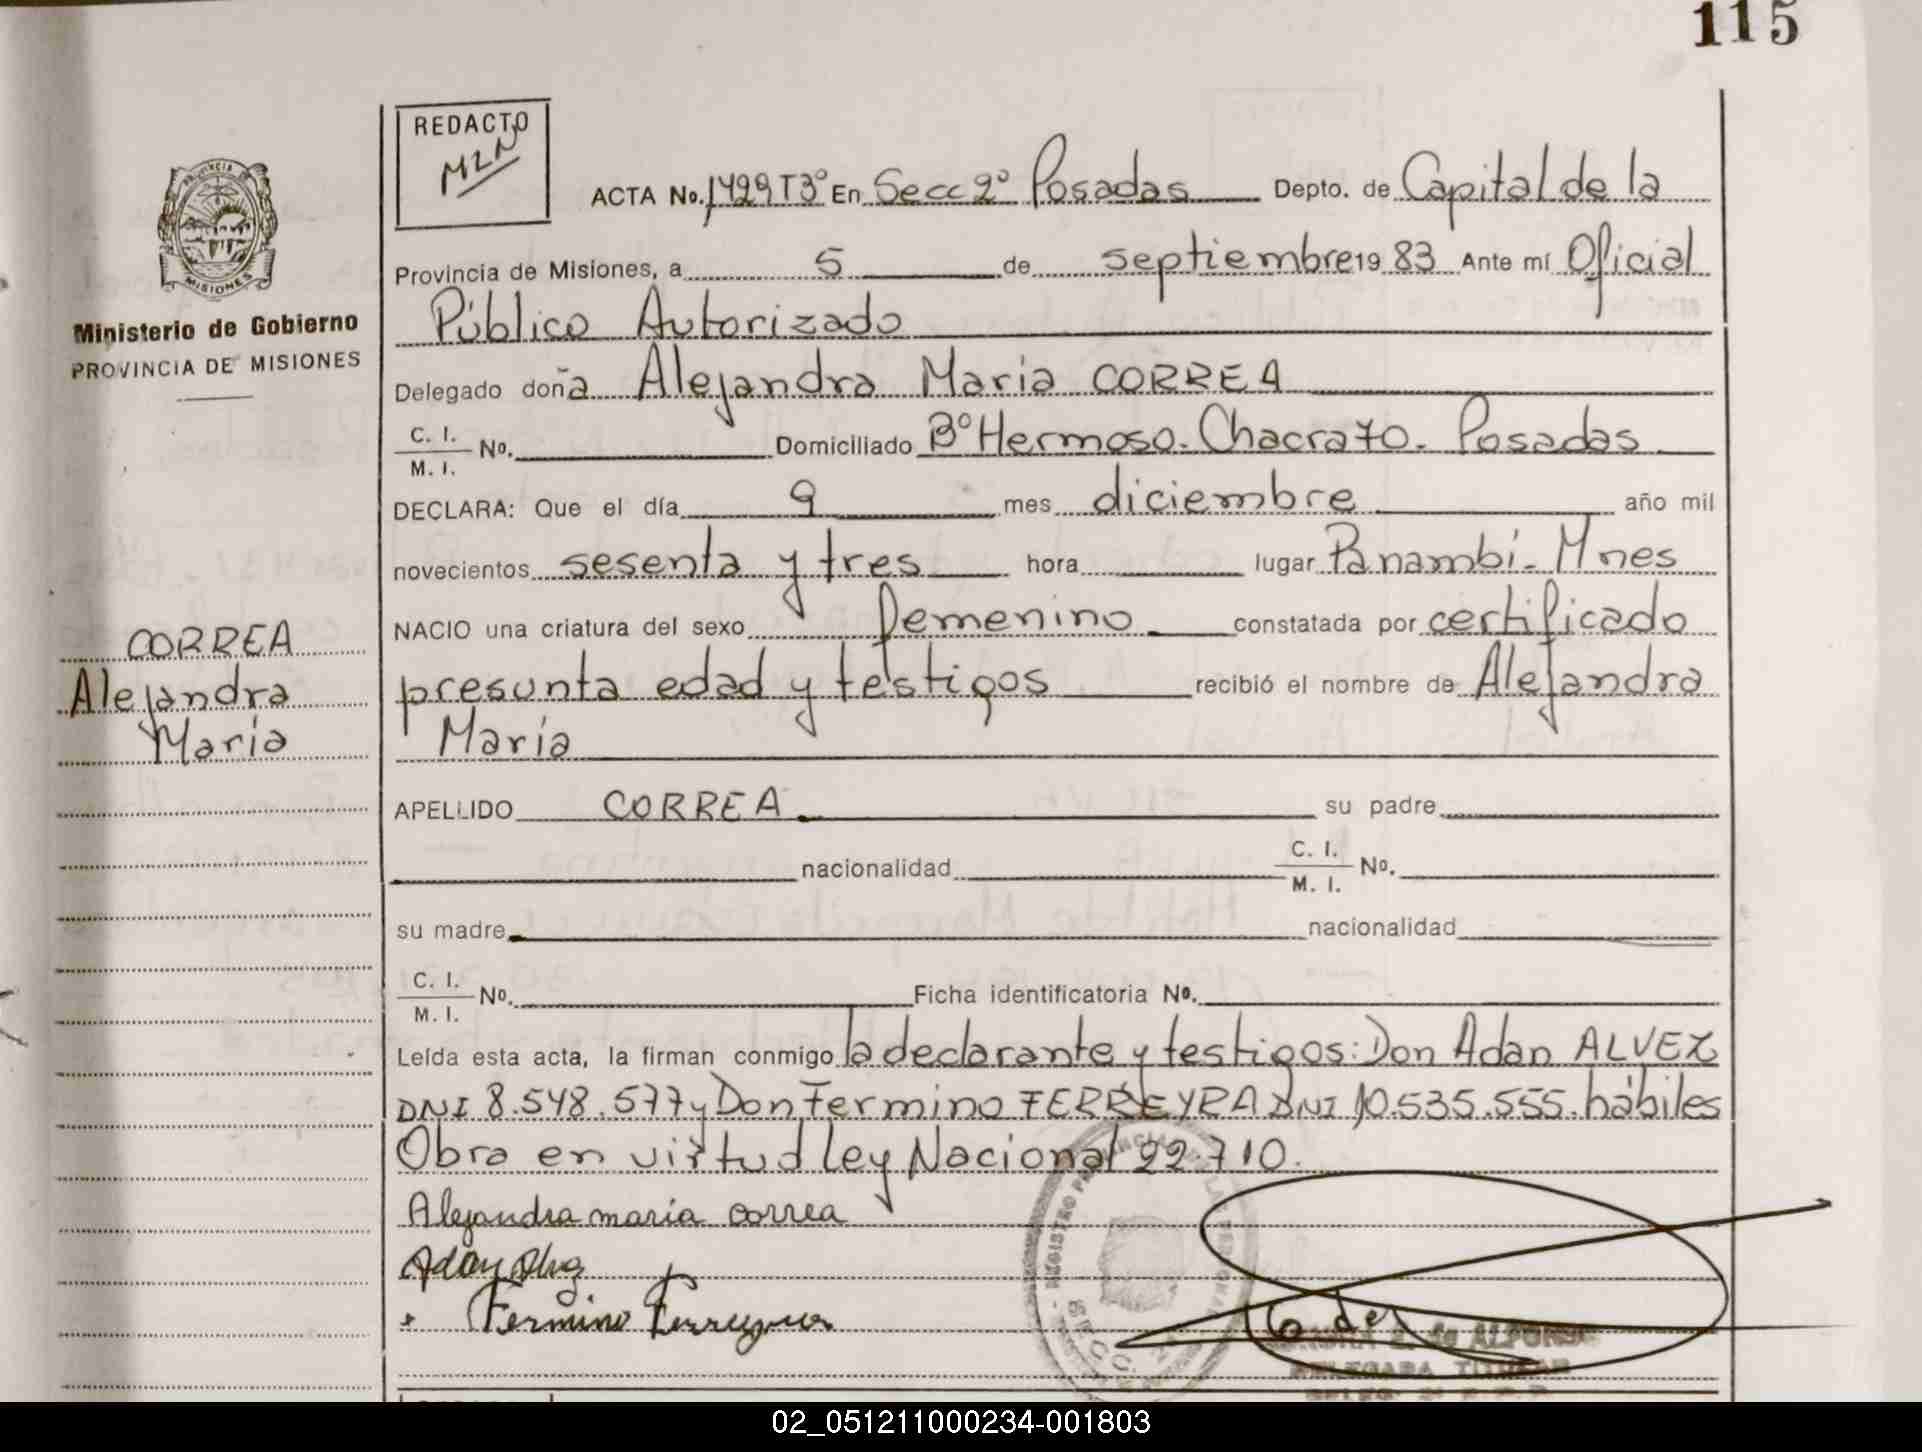 115
REDACTO
MLN
PROVINCIA DE
MISIONES
Ministerio de Gobierno
PROVINCIA DE MISIONES
ACTA No. 1429 T3º En Secc 2º Posadas Depto. de Capital de la
Provincia de Misiones, a 5 de septiembre 1983 Ante mí Oficial
Público Autorizado
Delegado doña Alejandra Maria CORREA
C. I.
M. I. No. Domiciliado Bº Hermoso - Chacra 70 - Posadas
DECLARA: Que el día 9 mes diciembre año mil
novecientos sesenta y tres hora lugar Panambí - Mnes
NACIO una criatura del sexo femenino constatada por certificado
presunta edad y testigos recibió el nombre de Alejandra
María
CORREA
Alejandra
María
APELLIDO CORREA su padre
nacionalidad C. I.
M. I. No.
su madre nacionalidad
C. I.
M. I. No. Ficha identificatoria No.
Leída esta acta, la firman conmigo la declarante y testigos: Don Adan ALVEZ
DNI 8.548.577 y Don Fermino FERREYRA DNI 10.535.555. hábiles
Obra en virtud ley Nacional 22710.
Alejandra maria correa
Adan Alvez
Fermino Ferreyra
REGISTRO PROVINCIAL DE LAS PERSONAS
SECC.
de ALFONSO
DELEGADA TITULAR
02_051211000234-001803